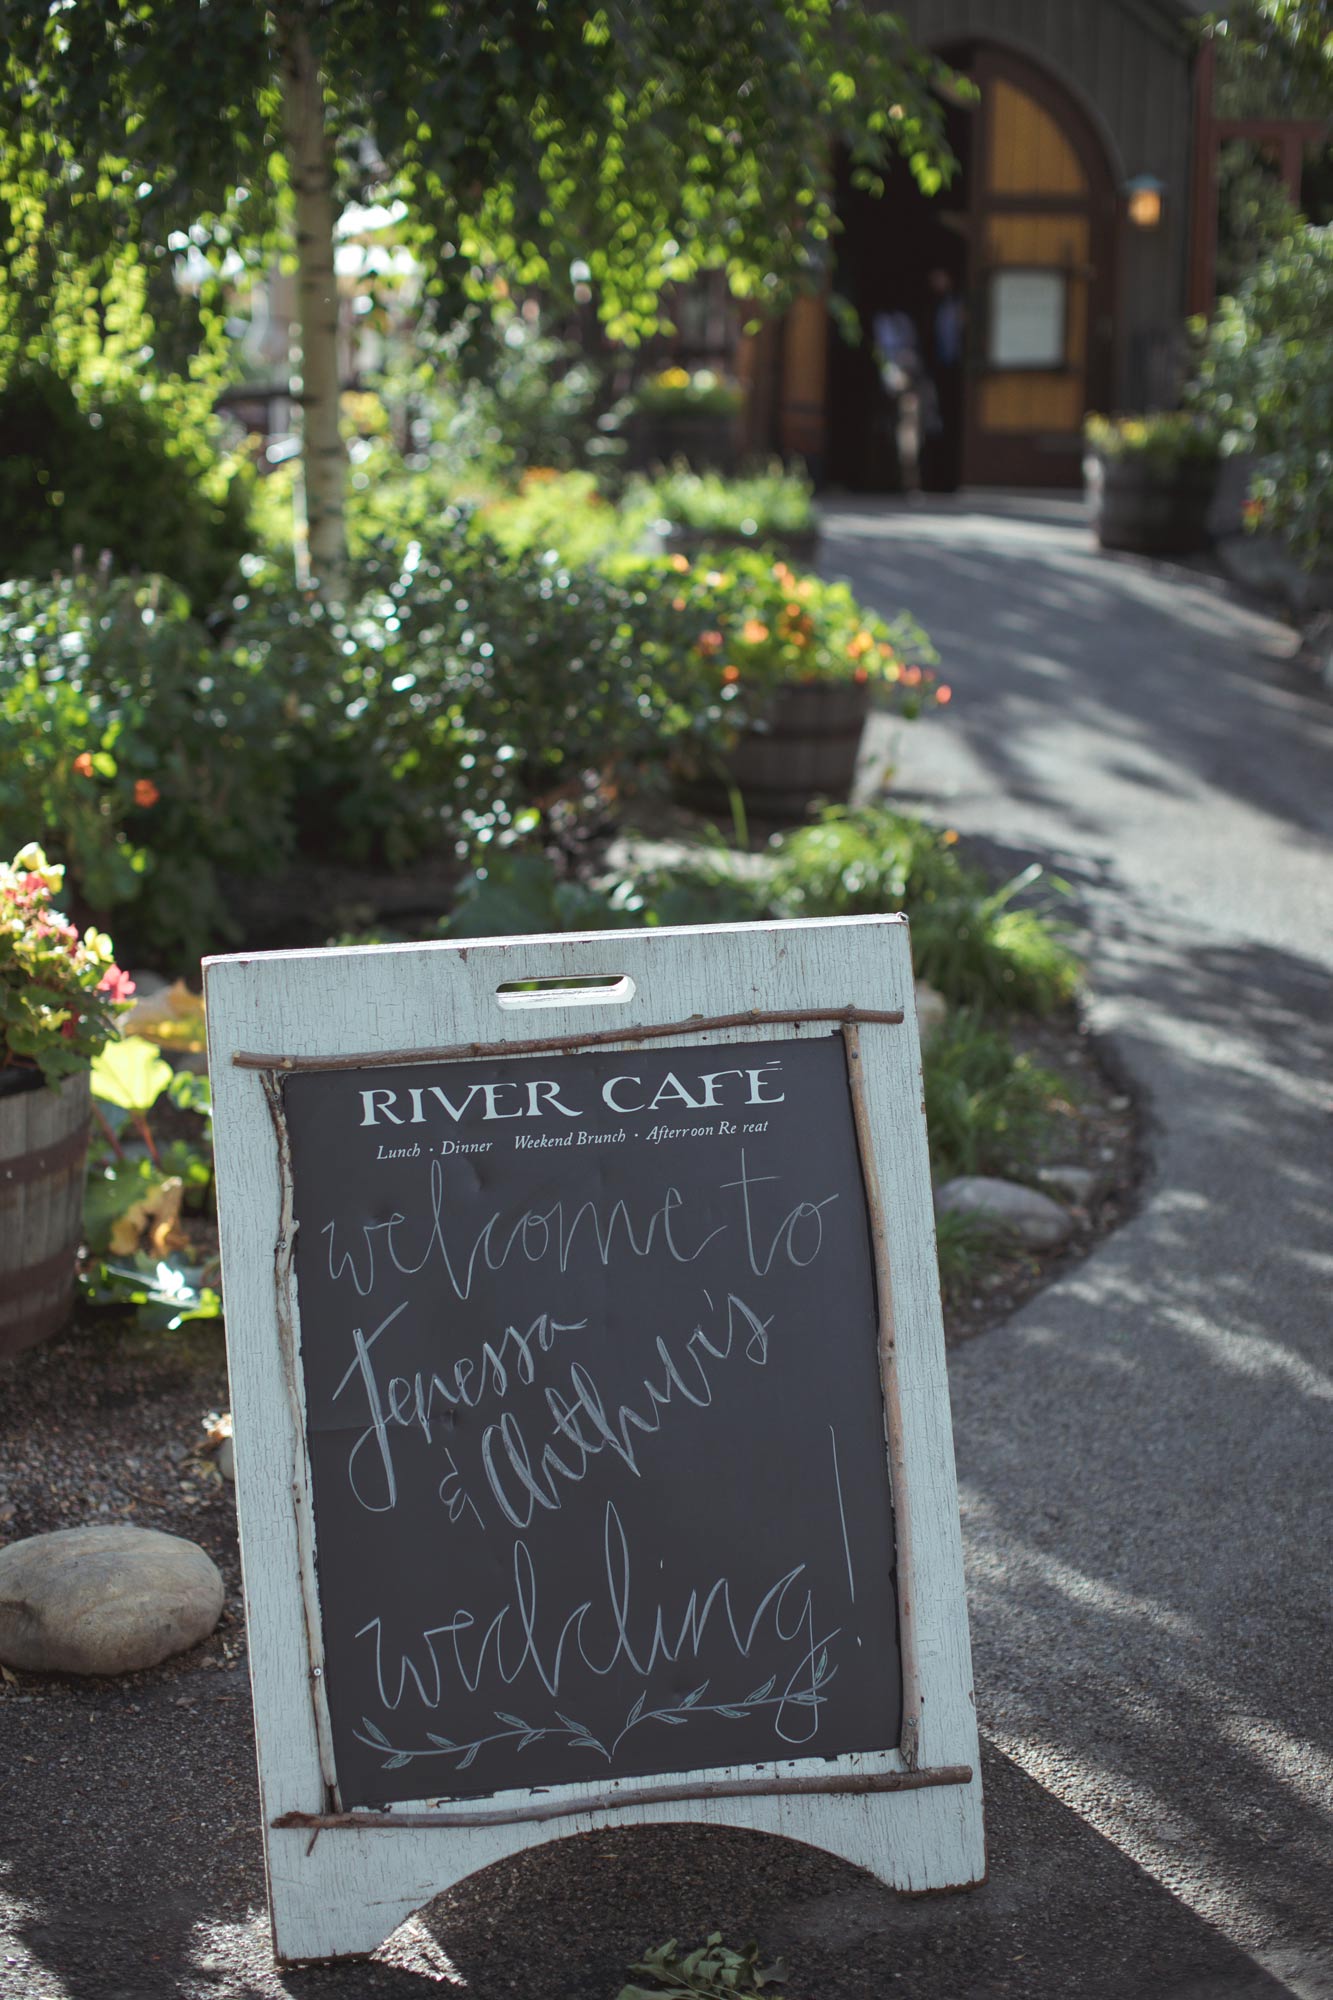 RIVER CAFÉ
Lunch · Dinner Weekend Brunch · Afterroon Re reat
welcome to
Jenessa
& Arthur's
wedding!